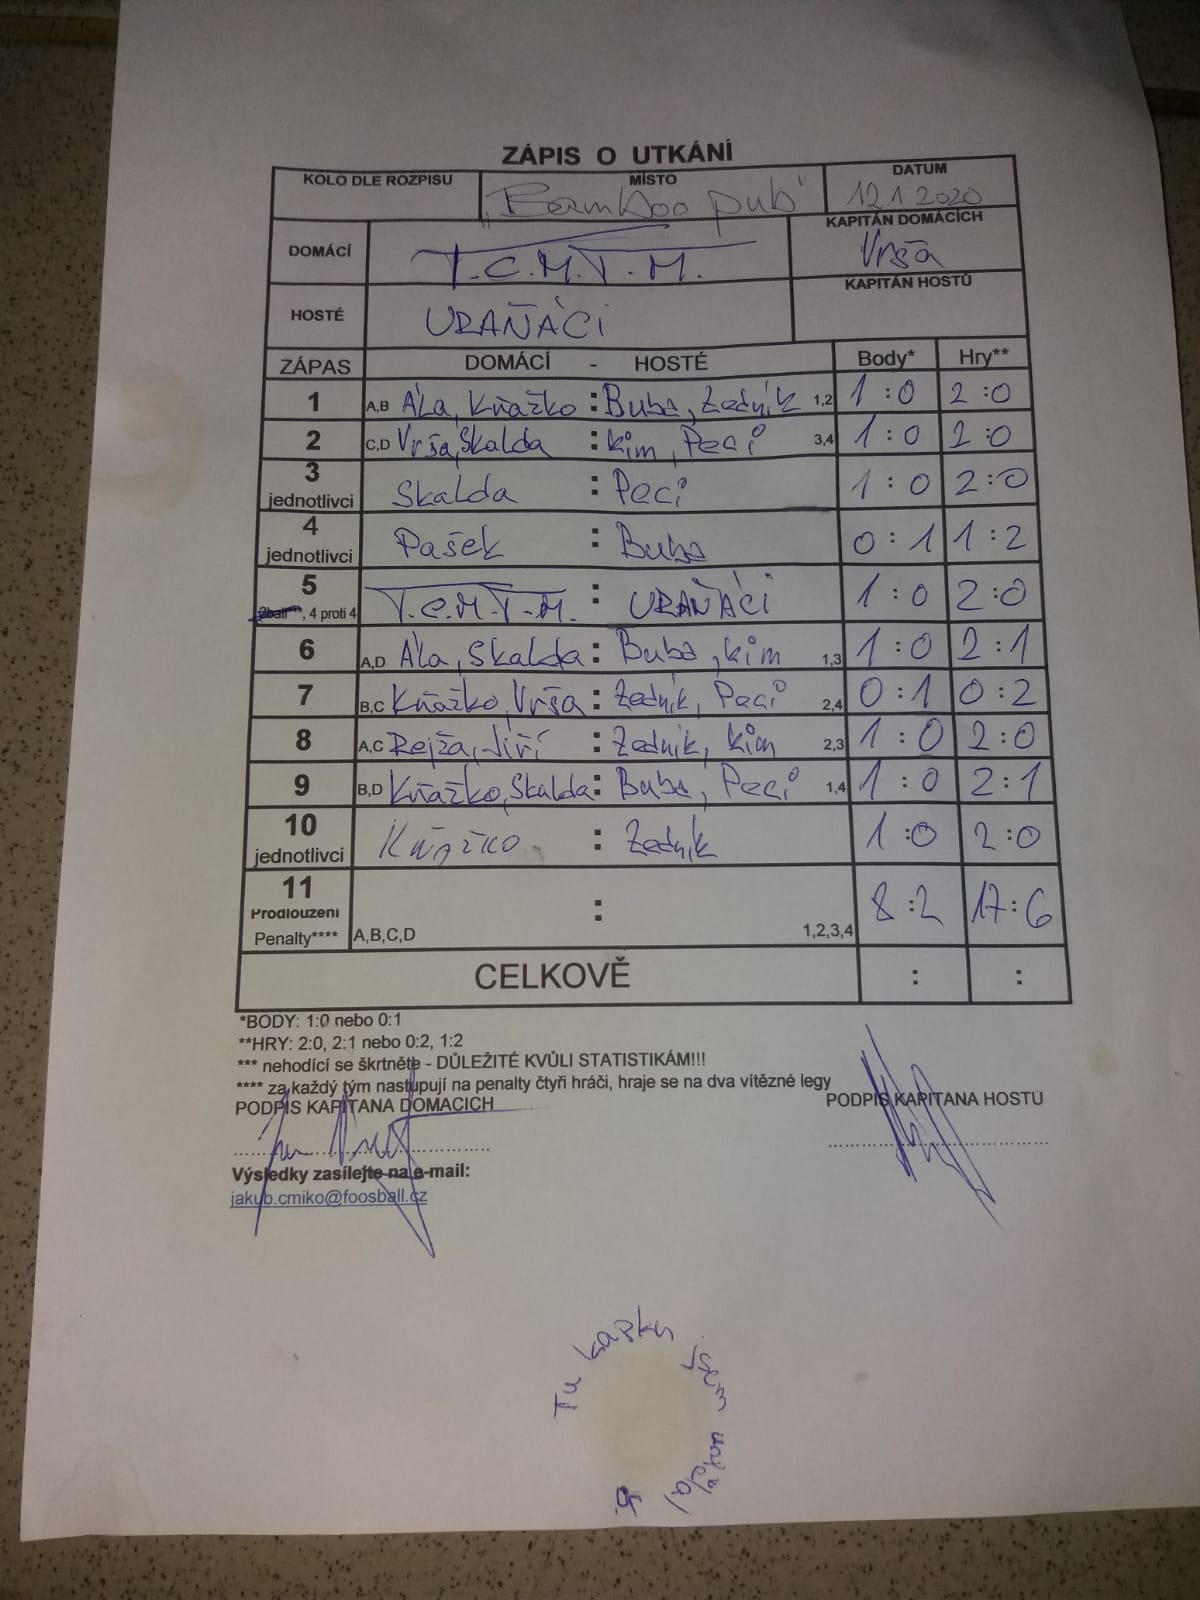 ZÁPIS O UTKÁNÍ
KOLO DLE ROZPISU MÍSTO DATUM
„Bamboo pub“ 12.1.2020
DOMÁCÍ T.C.M.T.M. KAPITÁN DOMÁCÍCH
Vrša
HOSTÉ URAŇÁCI KAPITÁN HOSTŮ
ZÁPAS DOMÁCÍ - HOSTÉ Body* Hry**
1 A,B Ála, Kňažko : Buba, Zedník 1,2 1:0 2:0
2 C,D Vrša, Skalda : Kim, Peci 3,4 1:0 2:0
3 jednotlivci Skalda : Peci 1:0 2:0
4 jednotlivci Pašek : Buba 0:1 1:2
5 2ball***, 4 proti 4 T.C.M.T.M. : URAŇÁCI 1:0 2:0
6 A,D Ála, Skalda : Buba, Kim 1,3 1:0 2:1
7 B,C Kňažko, Vrša : Zedník, Peci 2,4 0:1 0:2
8 A,C Rejža, Jiří : Zedník, Kim 2,3 1:0 2:0
9 B,D Kňažko, Skalda : Buba, Peci 1,4 1:0 2:1
10 jednotlivci Kňažko : Zedník 1:0 2:0
11 Prodloužení Penalty**** A,B,C,D : 1,2,3,4 8:2 17:6
CELKOVĚ : :
*BODY: 1:0 nebo 0:1
**HRY: 2:0, 2:1 nebo 0:2, 1:2
*** nehodící se škrtněte - DŮLEŽITÉ KVŮLI STATISTIKÁM!!!
**** za každý tým nastupují na penalty čtyři hráči, hraje se na dva vítězné legy
PODPIS KAPITÁNA DOMÁCÍCH PODPIS KAPITÁNA HOSTŮ
Výsledky zasílejte na e-mail:
jakub.cmiko@foosball.cz
Tu kaňku jsem